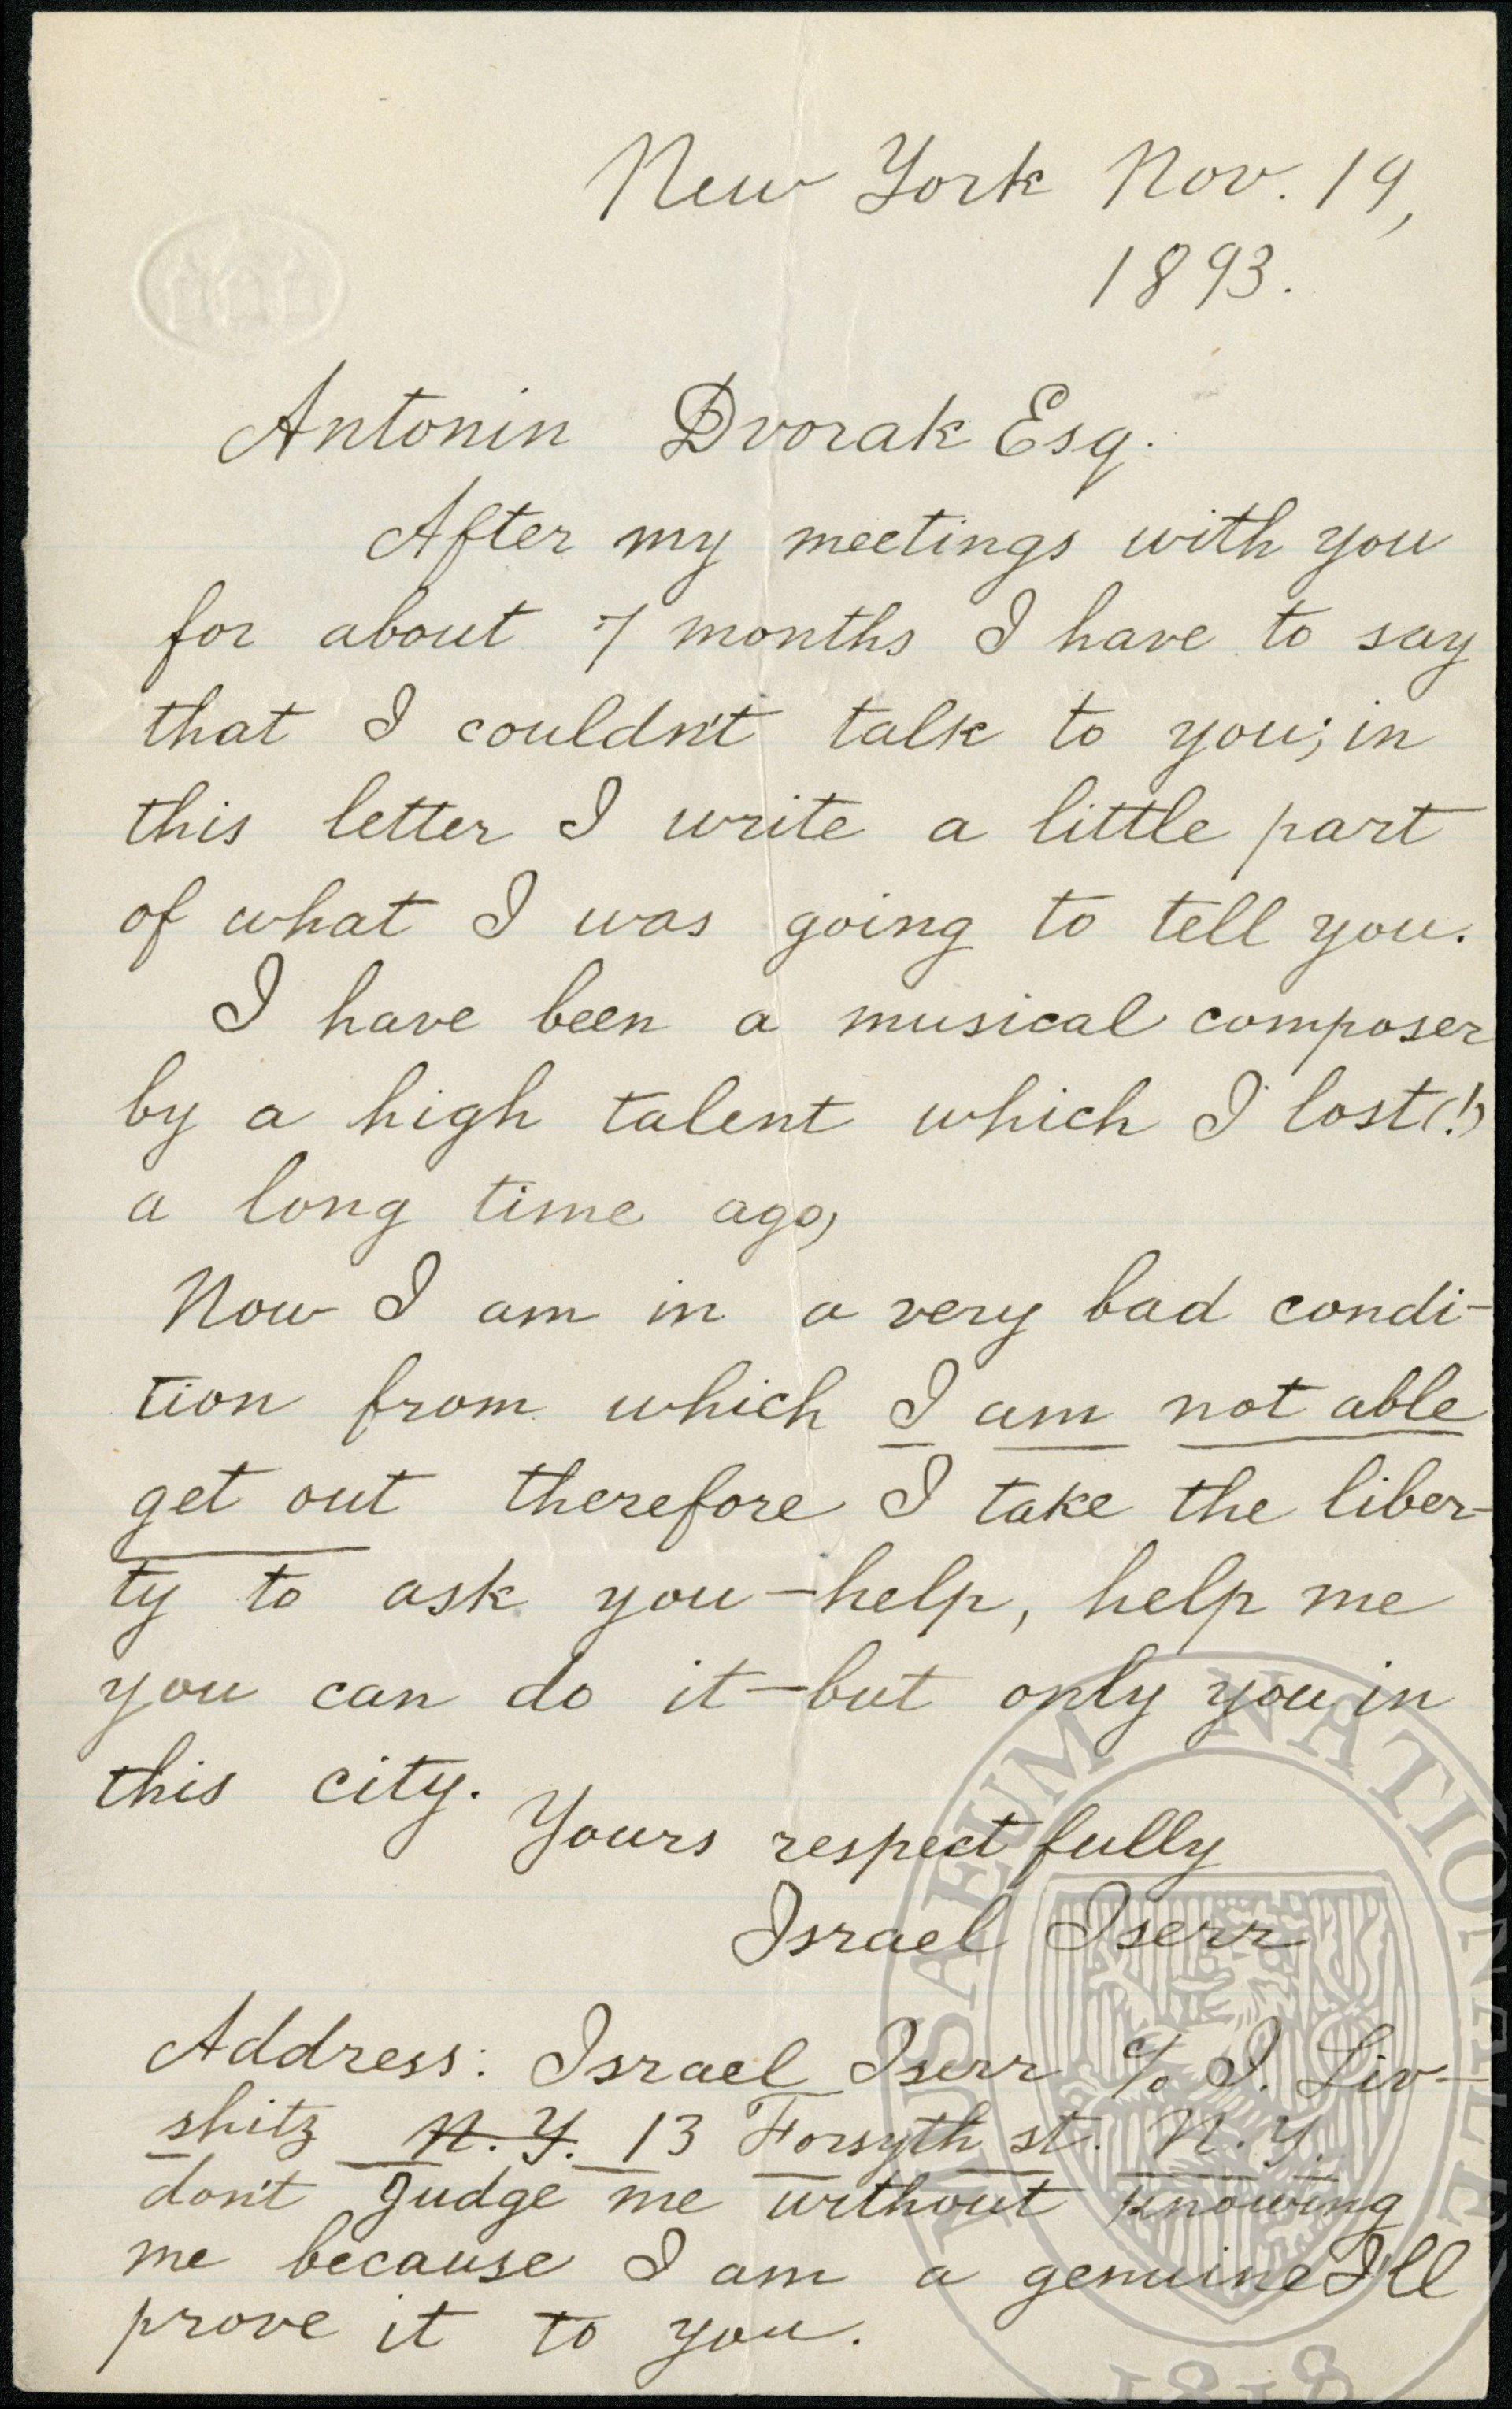 New York Nov. 19,
1893.
Antonin Dvorak Esq.
After my meetings with you
for about 7 months I have to say
that I couldn't talk to you; in
this letter I write a little part
of what I was going to tell you.
I have been a musical composer
by a high talent which I lost(!)
a long time ago,
Now I am in a very bad condi-
tion from which I am not able
get out therefore I take the liber-
ty to ask you—help, help me
you can do it—but only you in
this city.
Yours respectfully
Israel Iserr
Address: Israel Iserr c/o I. Liv-
shitz N.Y. 13 Forsyth st. N.Y.
don't judge me without knowing
me because I am a genuine I'll
prove it to you.
MUSAEUM NATIONALE
1818